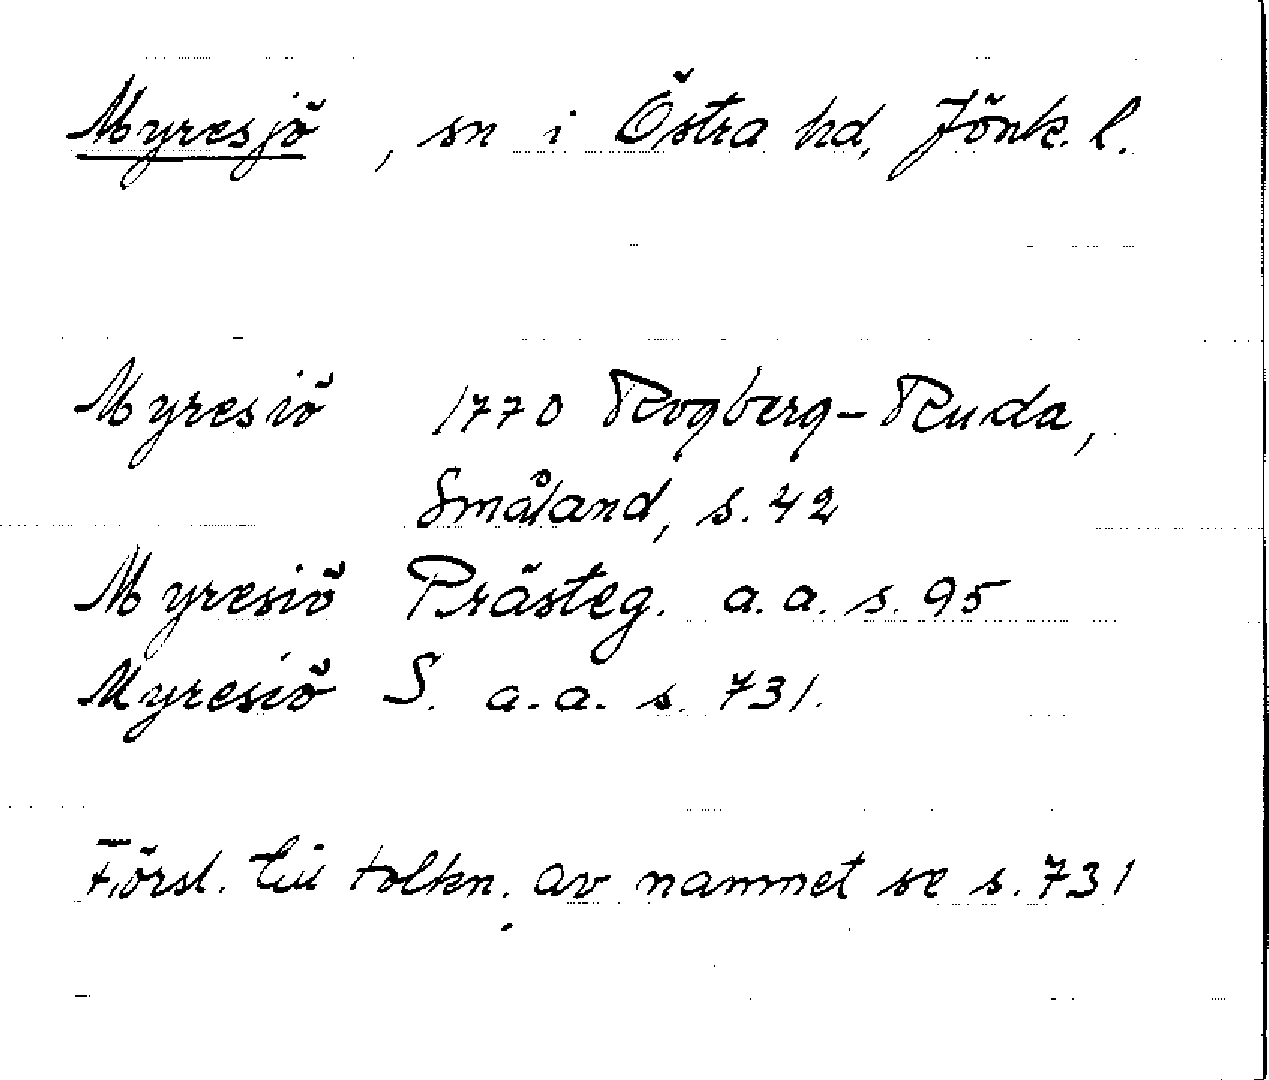 Myresjö, sn i Östra hd, Jönk. l.
Myresiö 1770 Rogberg-Ruda,
Småland, s. 42
Myresiö Prästeg. a.a. s. 95
Myresiö S. a.a. s. 731.
Försl. till tolkn. av namnet se s. 731